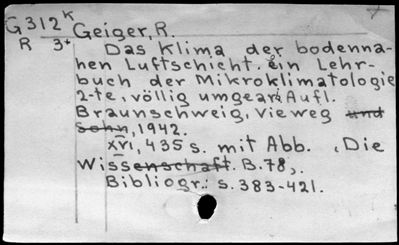 G312K Geiger, R.
R 3*
Das Klima der bodenna-
hen Luftschicht. Ein Lehr-
buch der Mikroklimatologie
2-te, völlig umgear. Aufl.
Braunschweig, Vieweg und
Sohn, 1942.
XVI, 435 s. mit Abb. (Die
Wissenschaft. B.78).
Bibliogr.: s. 383-421.